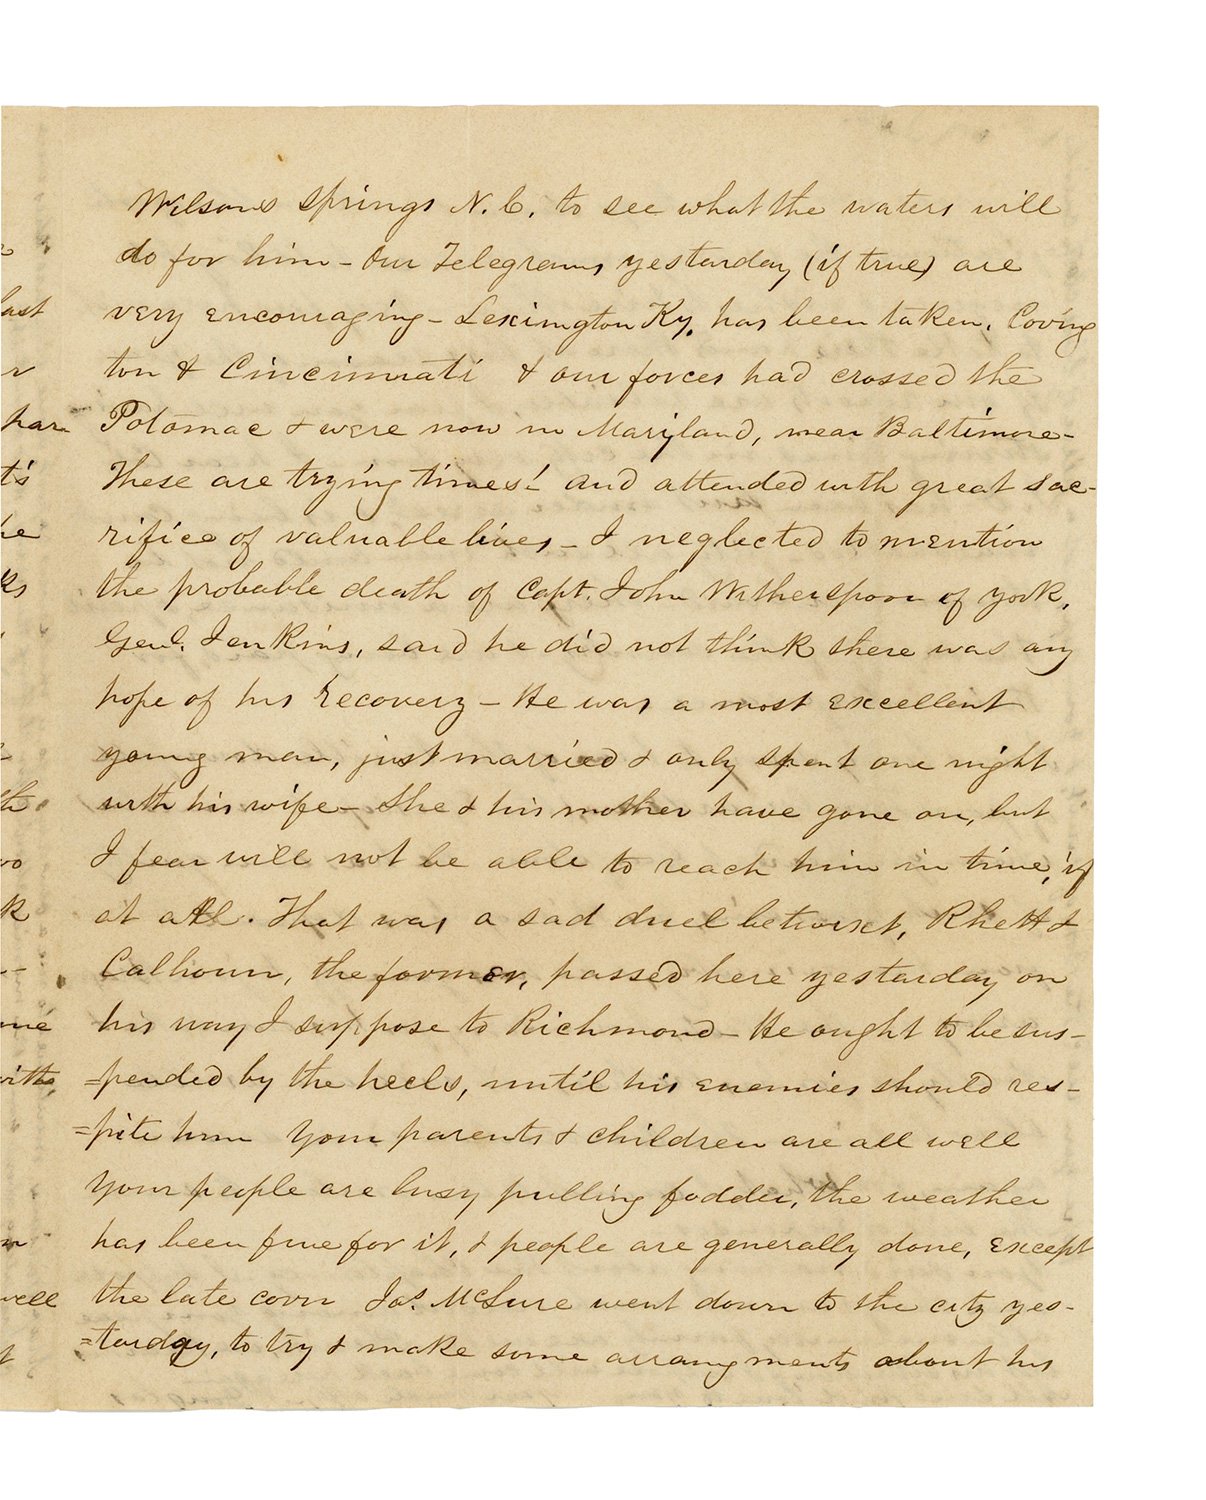 Wilsons Springs N.C. to see what the waters will
do for him - Our Telegrams yestarday (if true) are
very encouraging - Lexington Ky. has been taken, Coving
ton & Cincinnati & our forces had crossed the
Potomac & were now in Maryland, near Baltimore -
These are trying times! and attended with great sac-
rifice of valuable lives - I neglected to mention
the probable death of Capt. John Witherspoon of York,
Genl. Jenkins, said he did not think there was any
hope of his recovery - He was a most excellent
young man, just married & only spent one night
with his wife - She & his mother have gone on, but
I fear will not be able to reach him in time, if
at all. That was a sad duel betwixt, Rhett &
Calhoun, the former, passed here yestarday on
his way I suppose to Richmond - He ought to be sus-
=pended by the heels, until his enemies should res-
=pite him Your parents & children are all well
Your people are busy pulling fodder, the weather
has been fine for it, & people are generally done, except
the late corn Jas. McLure went down to the city yes-
=tarday, to try & make some arrangments about his